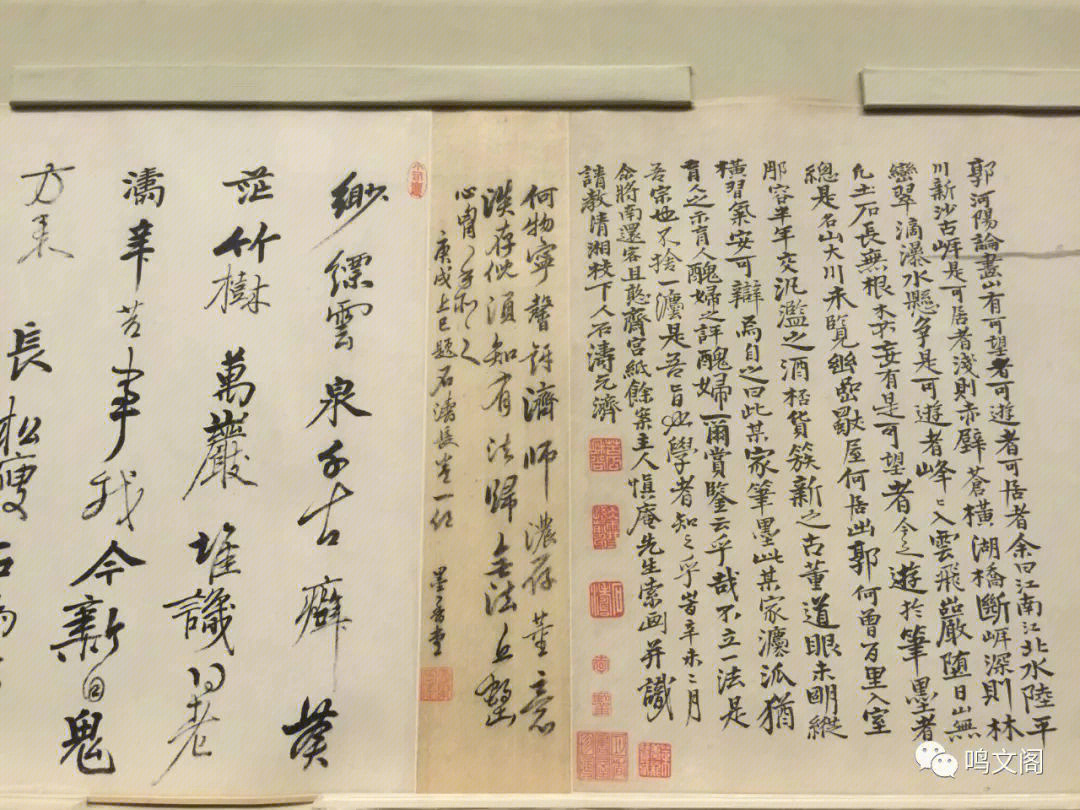 郭河陽論畫山有可望者可遊者可居者余曰江南江北水陸平
川新沙古岸是可居者淺則赤壁蒼橫湖橋斷岸深則林
巒翠滴瀑水懸爭是可遊者峰〻入雲飛巖墮日山無
凡土石長無根木不妄有是可望者今之遊於筆墨者
總是名山大川未覽幽巖獨屋何居出郭何曾百里入室
那容半年交汎濫之酒杯貨簇新之古董道眼未明縱
橫習氣安可辯焉自之曰此某家筆墨此某家灋派猶
盲人之示盲人醜婦之評醜婦爾賞鑒云乎哉不立一法是
吾宗也不捨一灋是吾旨也學者知之乎旹辛未二月
余將南還客且憨齋宮紙餘案主人慎庵先生索画并識
請教清湘枝下人石濤元濟
何物寧馨許濟師濃存董意
淡存倪須知有法歸無法丘壑
心胷
庚戌上巳題石濤長卷一絕 墨香堂
緲縹雲泉千古癖蒼
茫竹樹萬巖堆識同老
濤辛苦事我今新自鬼
方來
長松瘦石
鸣文阁